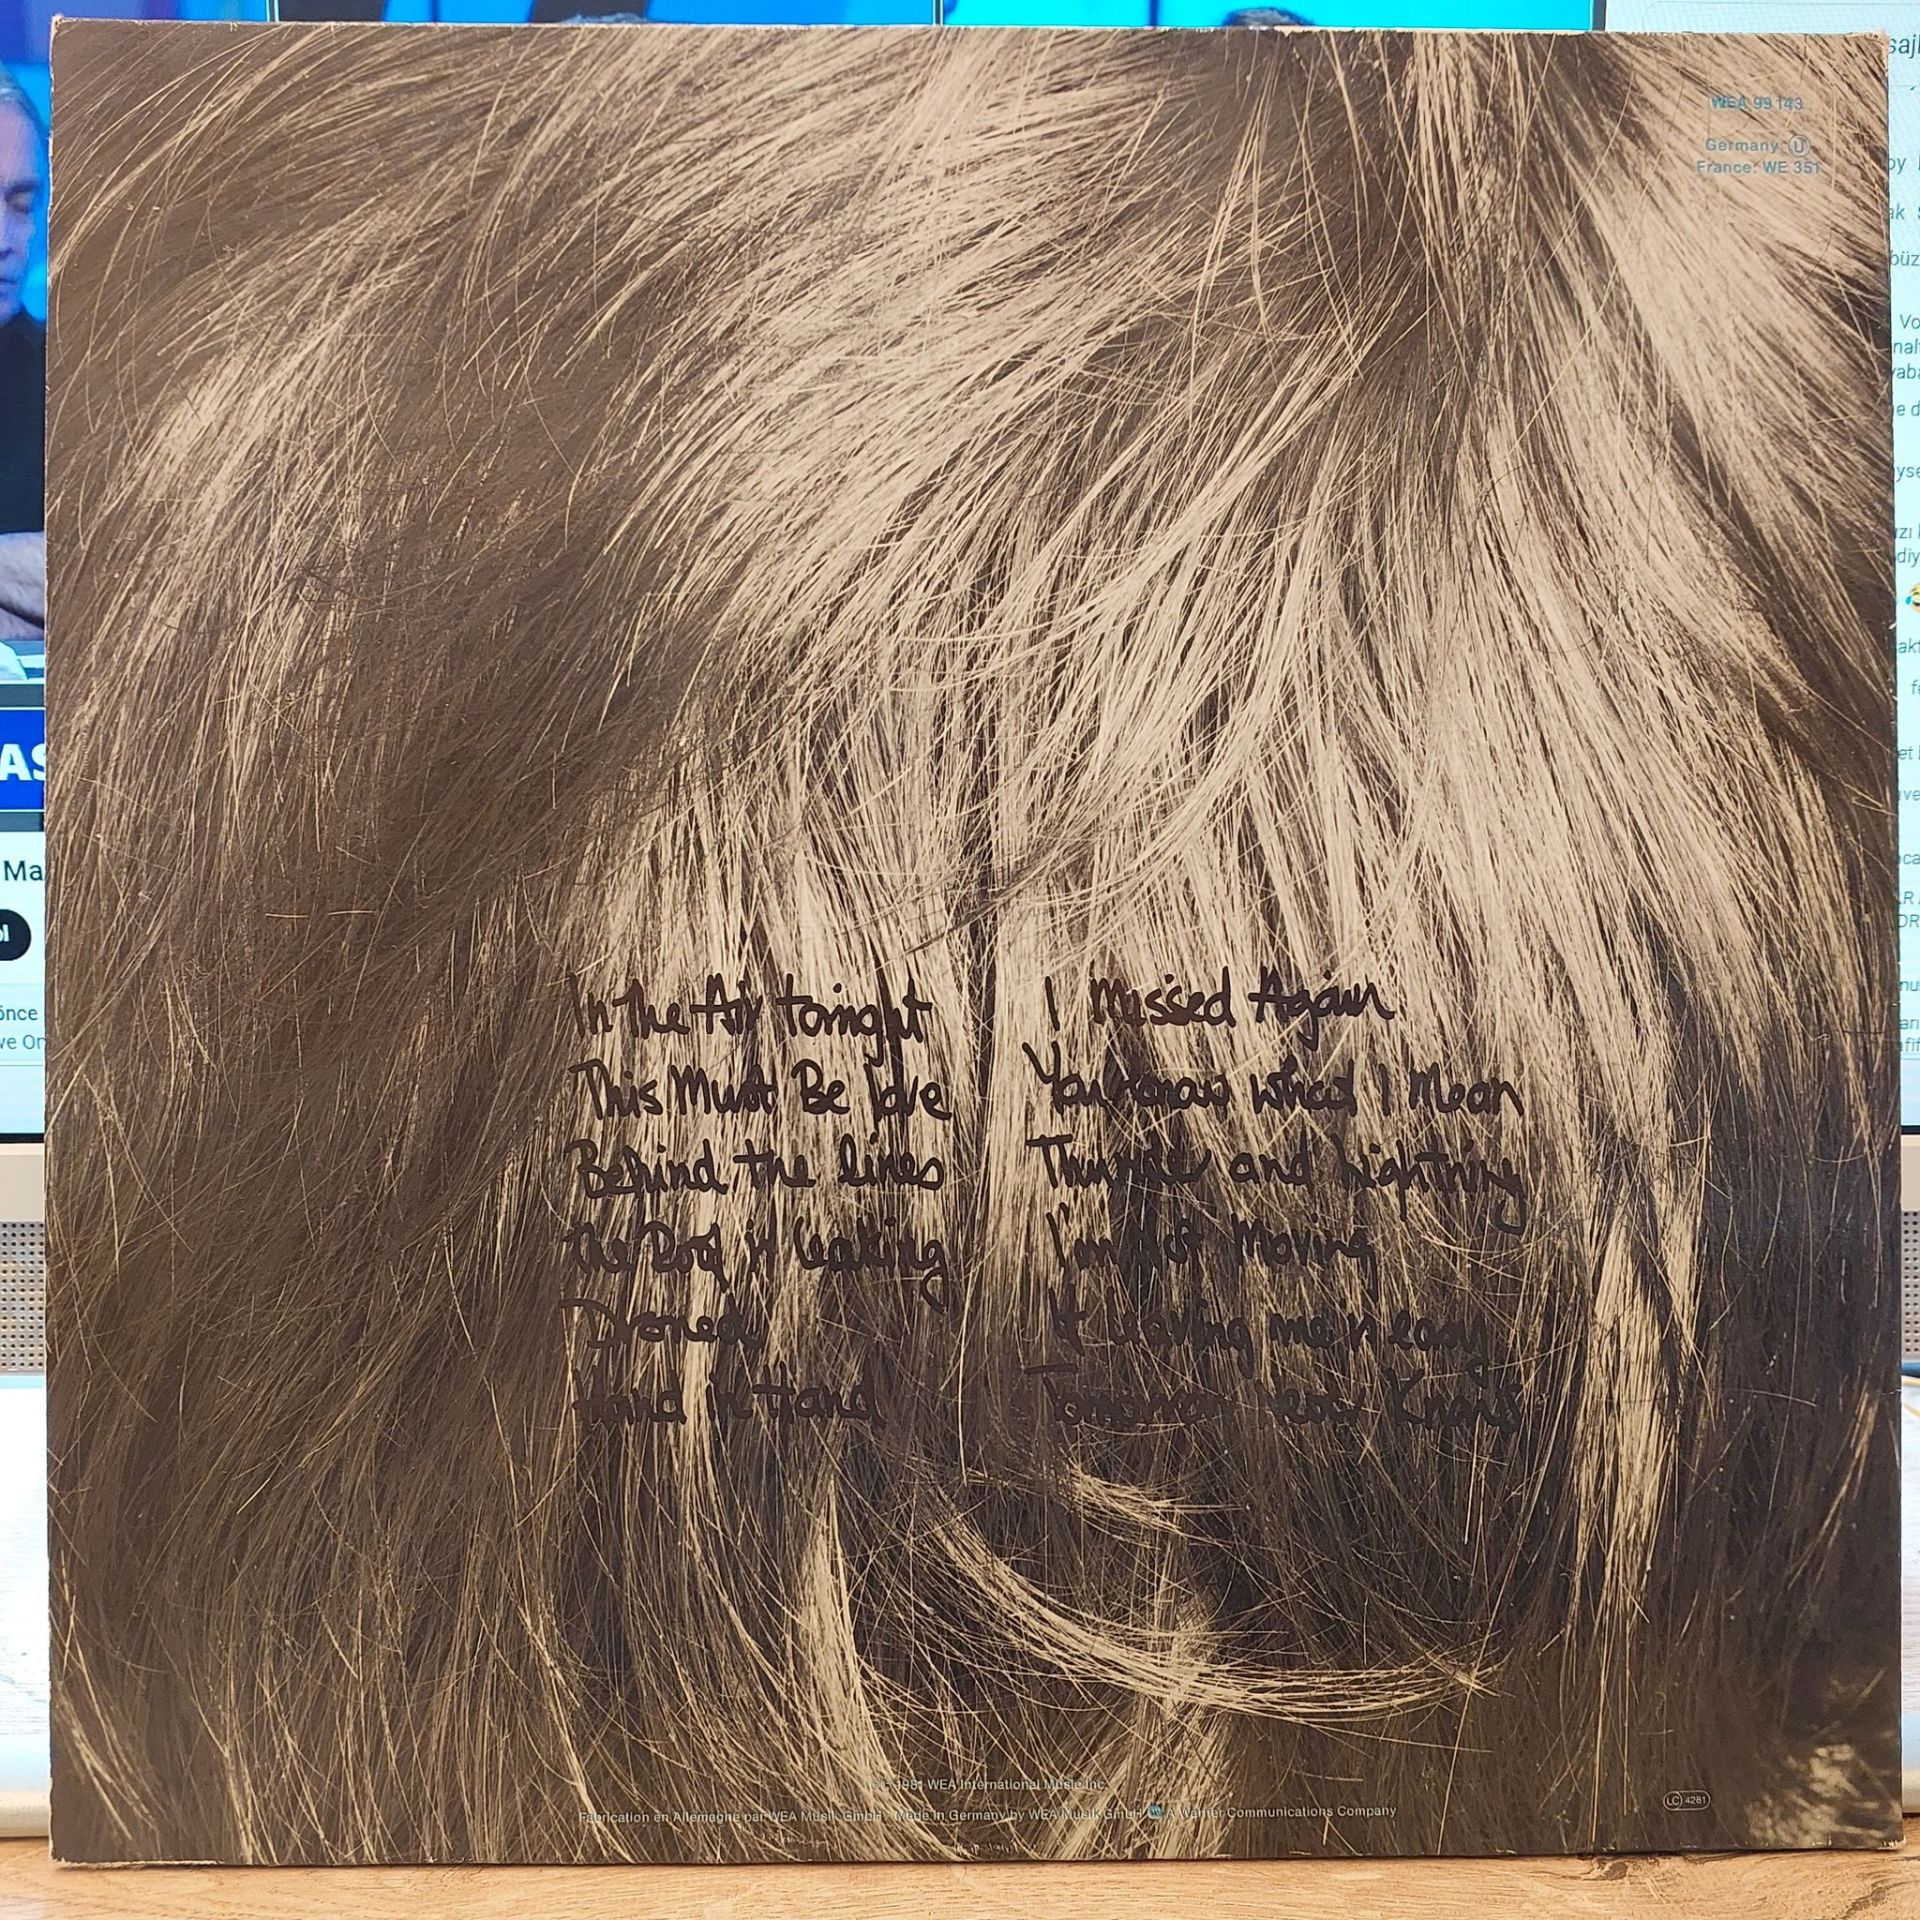 WEA 99 143
Germany: U
France: WE 351
In the Air tonight
This Must Be love
Behind the lines
The Roof is leaking
Droned
Hand in Hand
I Missed Again
You Know what I Mean
Thunder and Lightning
I'm Not Moving
If leaving me is easy
Tomorrow never Knows
1981 WEA International Music Inc.
Fabrication en Allemagne par WEA Musik GmbH · Made in Germany by WEA Musik GmbH A Warner Communications Company
LC 4281
AS
Ma
önce
ve On